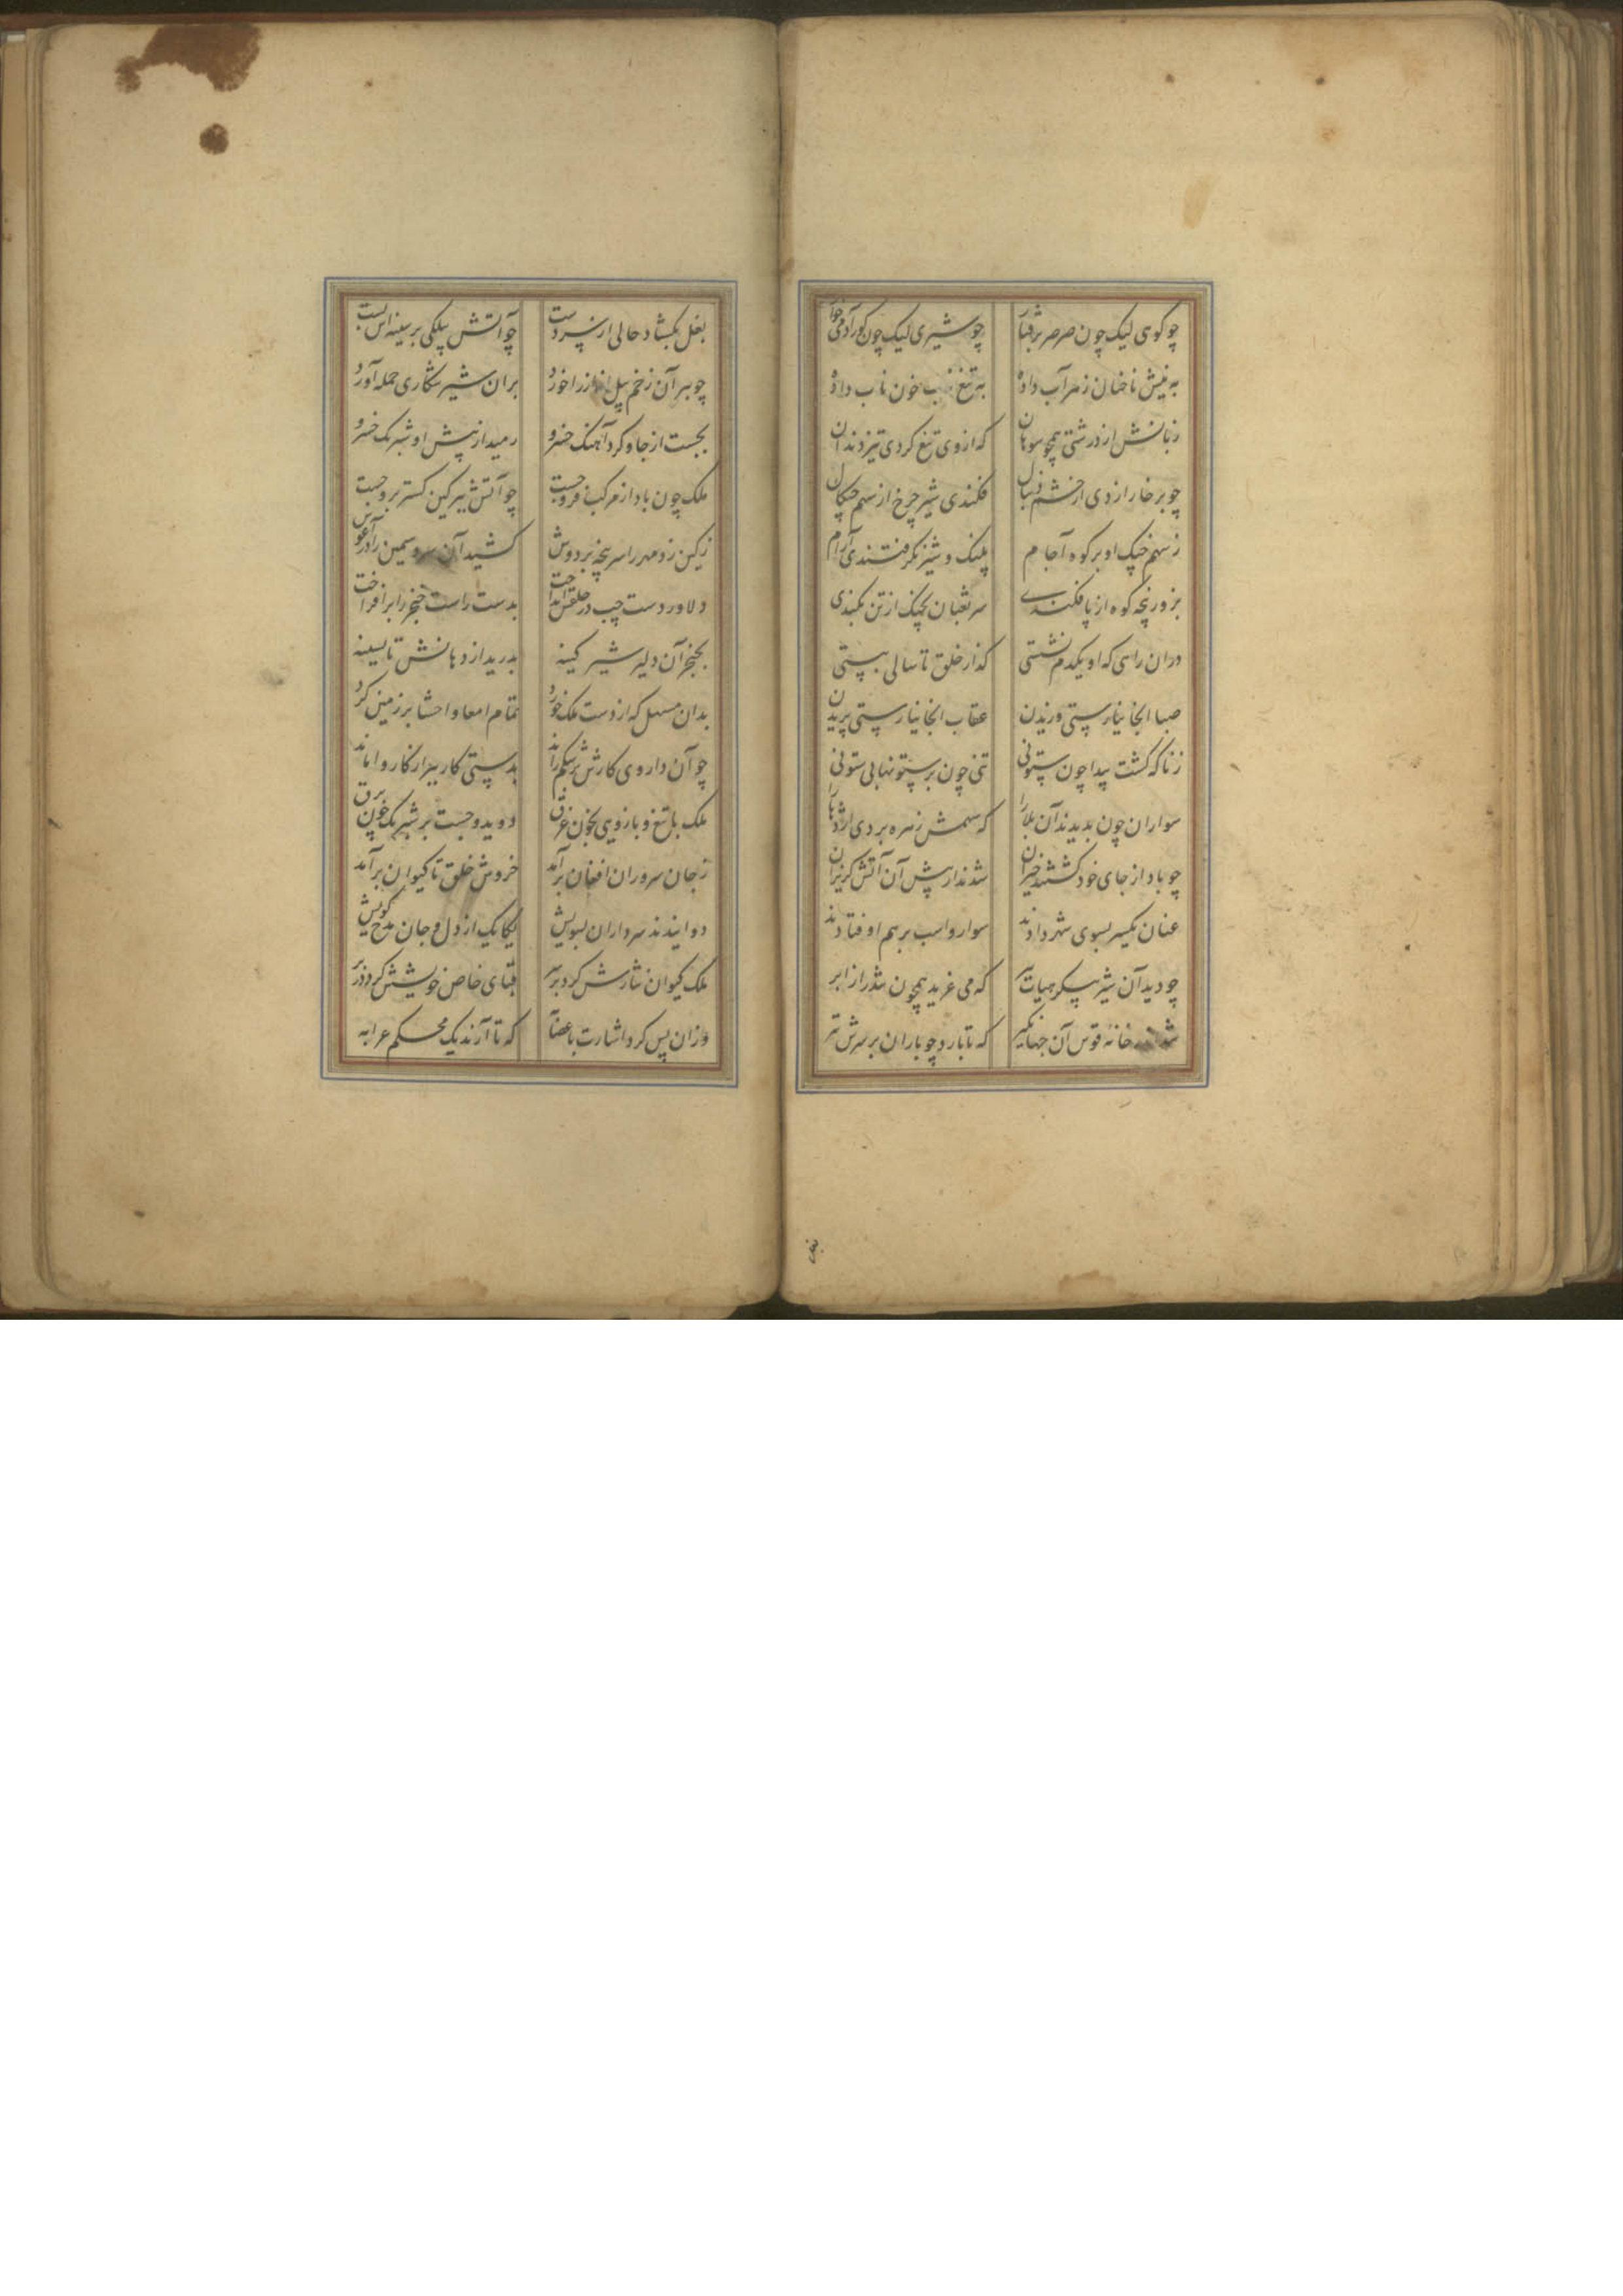 چو کوی لیک چون صرصر برفتار چو شیری لیک چون کور آدمی خوار
به نیش ناخنان زهر آب داده به تیغ خون ناب داده
زبانش از درشتی همچو سوهان که از وی تیغ کردی تیز دندان
چو بر خارا زدی از خشم دنبال فکندی شیر چرخ از سهم چنکال
ز سهم چنک او بر کوه آجام پلنک و شیر نکرفتندی آرام
بزور پنجه کوه از پا فکندی سر ثعبان بچنک از تن بکندی
دران راهی که او یکدم نشستی کذار خلق تا سالی ببستی
صبا آنجا نیارستی وزیدن عقاب آنجا نیارستی پریدن
ز ناکه کشت پیدا چون ستونی تنی چون بیستونها بی ستونی
سواران چون بدیدند آن بلا را که سهمش زهره بردی اژدها را
چو باد از جای خود کشتند خیزان شدند از پیش آن آتش کریزان
عنان یکسر بسوی شهر دادند سوار و اسب بر هم اوفتادند
چو دید آن شیر پیکر که می غرید همچون تندر از ابر
شد خانه قوس آن جهانکیر که تا بارد چو باران بر سرش تیر
بغل بکشاد حالی از بر دست چو آتش بیلکی بر سینه اش بست
چو ببر آن زخم پیل انداز را خورد بران شیر شکاری حمله آورد
بجست از جا و کرد آهنک خسرو رمید از پیش او شبرنک خسرو
ملک چون باد از مرکب فروجست چو آتش ببر کین کستر بروجست
ز کین زد مهر را سر پنجه بر دوش کشید آن سرو سیمین را در آغوش
دلاور دست چپ در حلقش انداخت بدست راست خنجر را برافراخت
بخنجر آن دلیر شیر کینه بدرید از دهانش تا بسینه
بدان مسهل که از دست ملک خورد تمام امعا و احشا بر زمین کرد
چو آن داروی کارش بر شکم راند بدستی کار بیزار کار واماند
ملک با تیغ و بازویی بخون غرق دوید و جست بر شبرنک چون برق
ز جان سروران افغان برآمد خروش خلق تا کیوان برآمد
دوانیدند سرداران بسویش یکایک از دل و جان مدح کویش
ملک کیوان نثارش کرد بر سر قبای خاص خویشش کرد در بر
وزان پس کرد اشارت با که تا آرند یک محکم عرابه